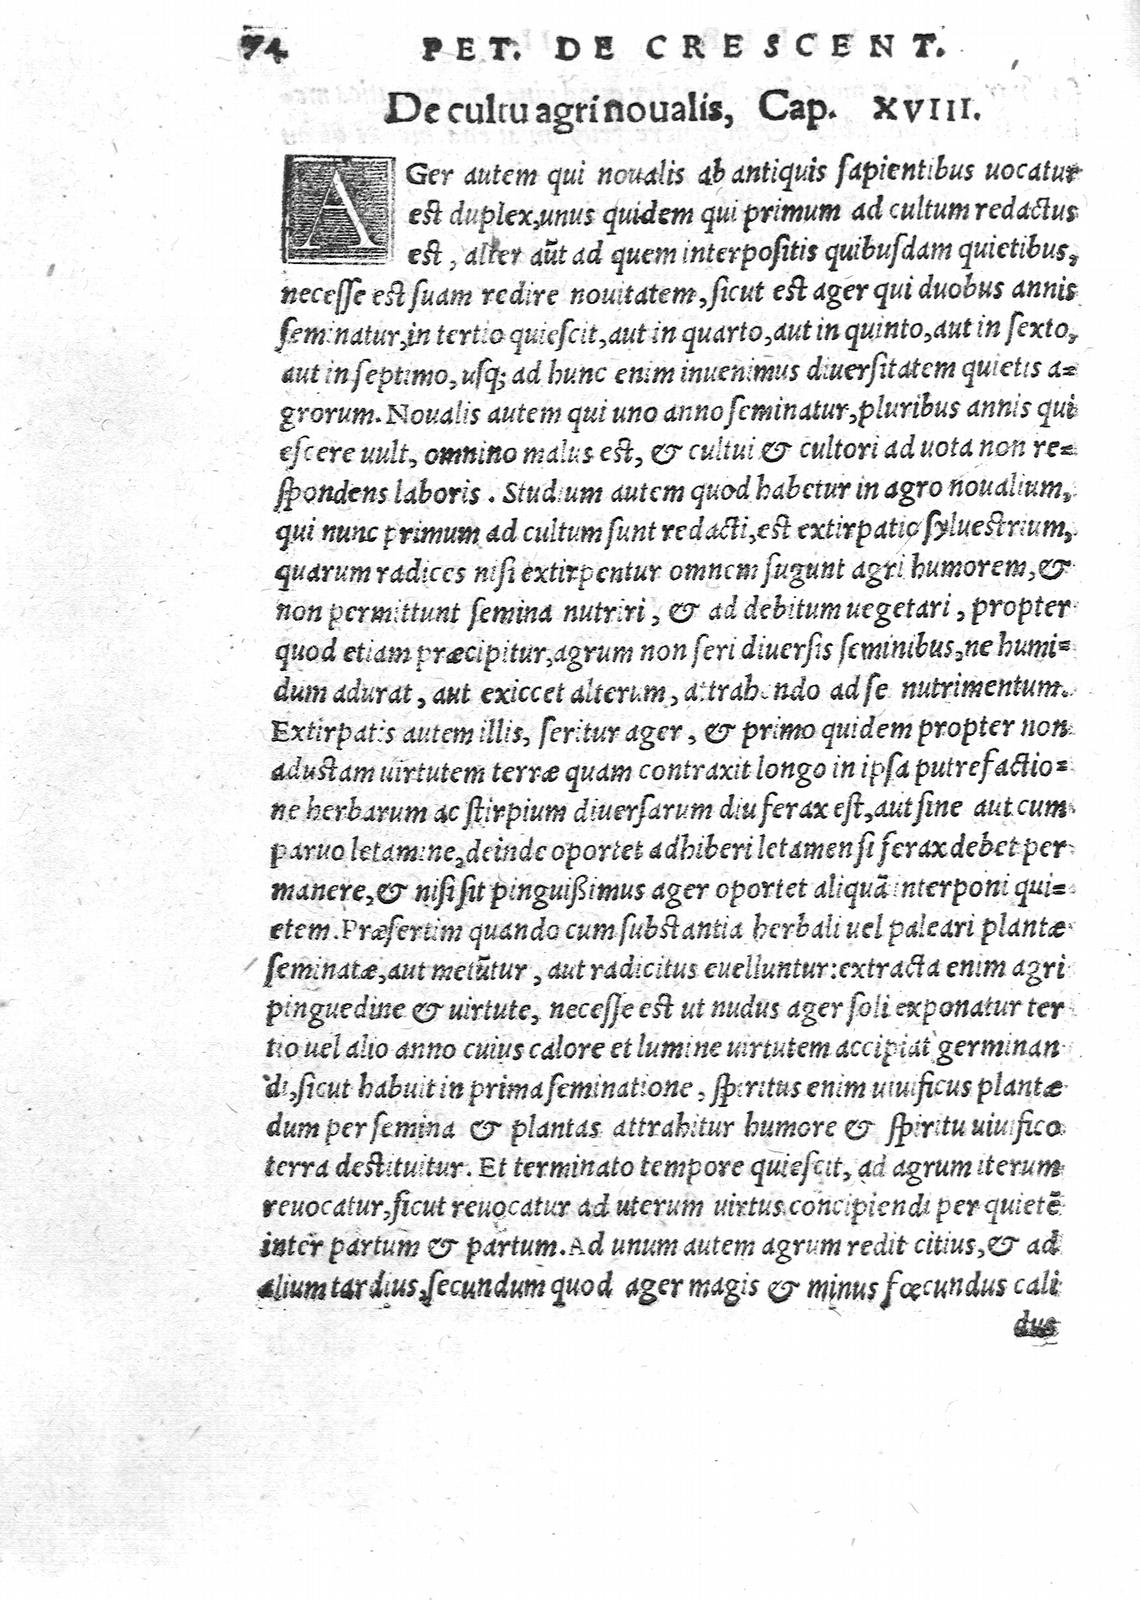 74 PET. DE CRESCENT.
De cultu agri noualis, Cap. XVIII.
AGer autem qui noualis ab antiquis ſapientibus uocatur
est duplex, unus quidem qui primum ad cultum redactus
est, alter aūt ad quem interpoſitis quibuſdam quietibus,
neceſſe est ſuam redire nouitatem, ſicut est ager qui duobus annis
ſeminatur, in tertio quieſcit, aut in quarto, aut in quinto, aut in ſexto,
aut in ſeptimo, uſq; ad hunc enim inuenimus diuerſitatem quietis a=
grorum. Noualis autem qui uno anno ſeminatur, pluribus annis qui
eſcere uult, omnino malus est, & cultui & cultori ad uota non re=
ſpondens laboris. Studium autem quod habetur in agro noualium,
qui nunc primum ad cultum ſunt redacti, est extirpatio ſyluestrium,
quarum radices niſi extirpentur omnem ſugunt agri humorem, &
non permittunt ſemina nutriri, & ad debitum uegetari, propter
quod etiam præcipitur, agrum non ſeri diuerſis ſeminibus, ne humi=
dum adurat, aut exiccet alterum, attrahendo ad ſe nutrimentum.
Extirpatis autem illis, ſeritur ager, & primo quidem propter non
adustam uirtutem terræ quam contraxit longo in ipſa putrefactio=
ne herbarum ac stirpium diuerſarum diu ferax eſt, aut ſine aut cum
paruo letamine, deinde oportet adhiberi letamen ſi ferax debet per
manere, & niſi ſit pinguißimus ager oportet aliquā interponi qui=
etem. Præſertim quando cum ſubstantia herbali uel paleari plantæ
ſeminatæ, aut metūtur, aut radicitus euelluntur: extracta enim agri
pinguedine & uirtute, neceſſe est ut nudus ager ſoli exponatur ter
tio uel alio anno cuius calore et lumine uirtutem accipiat germinan
di, ſicut habuit in prima ſeminatione, ſpiritus enim uiuificus plantæ
dum per ſemina & plantas attrahitur humore & ſpiritu uiuifico
terra destituitur. Et terminato tempore quieſcit, ad agrum iterum
reuocatur, ſicut reuocatur ad uterum uirtus concipiendi per quietē
inter partum & partum. Ad unum autem agrum redit citius, & ad
alium tardius, ſecundum quod ager magis & minus fœcundus cali
dus